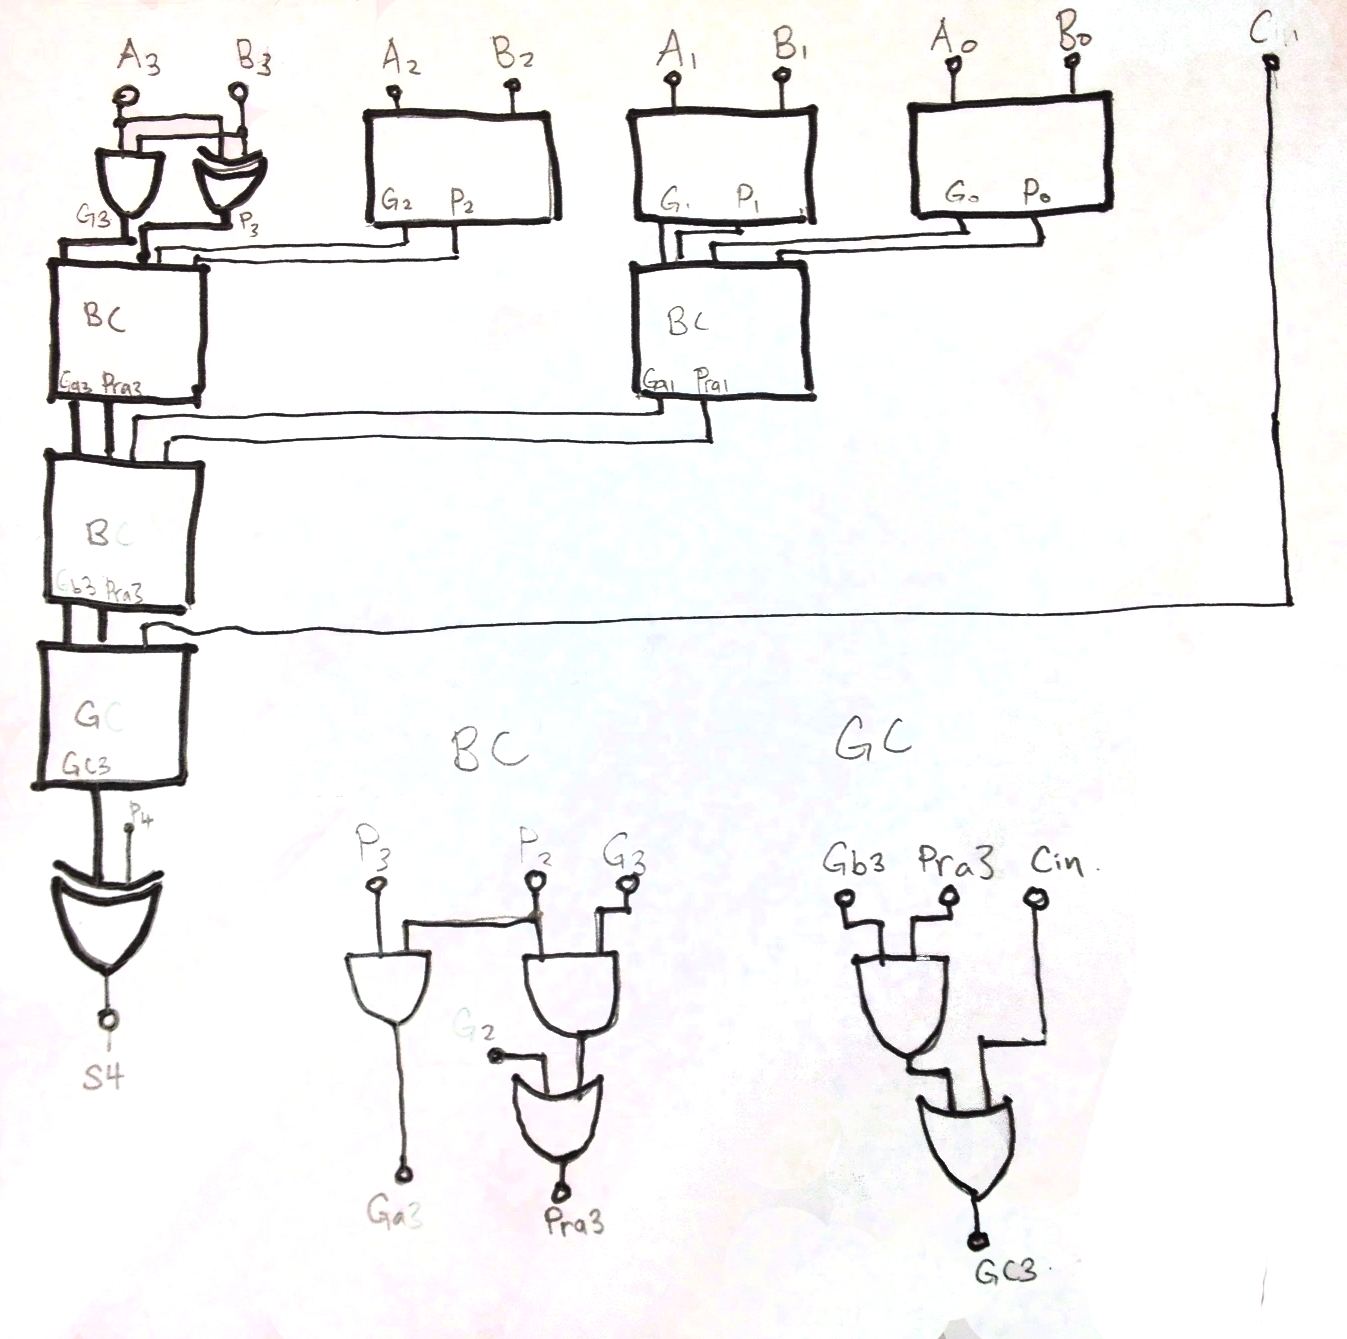 A3 B3 A2 B2 A1 B1 A0 B0
G3 P3 G2 P2 G1 P1 G0 P0
BC BC
Ga3 Pra3 Ga1 Pra1
BC
Gb3 Pra3
GC
GC3
P4
S4
BC
P3 P2 G3
G2
Ga3 Pra3
GC
Gb3 Pra3 Cin.
GC3.